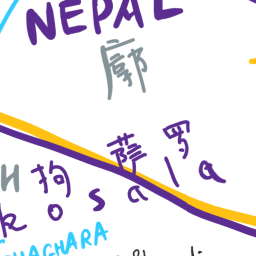 NEPAL
廓
拘萨罗
H
kosala
GHAGHARA